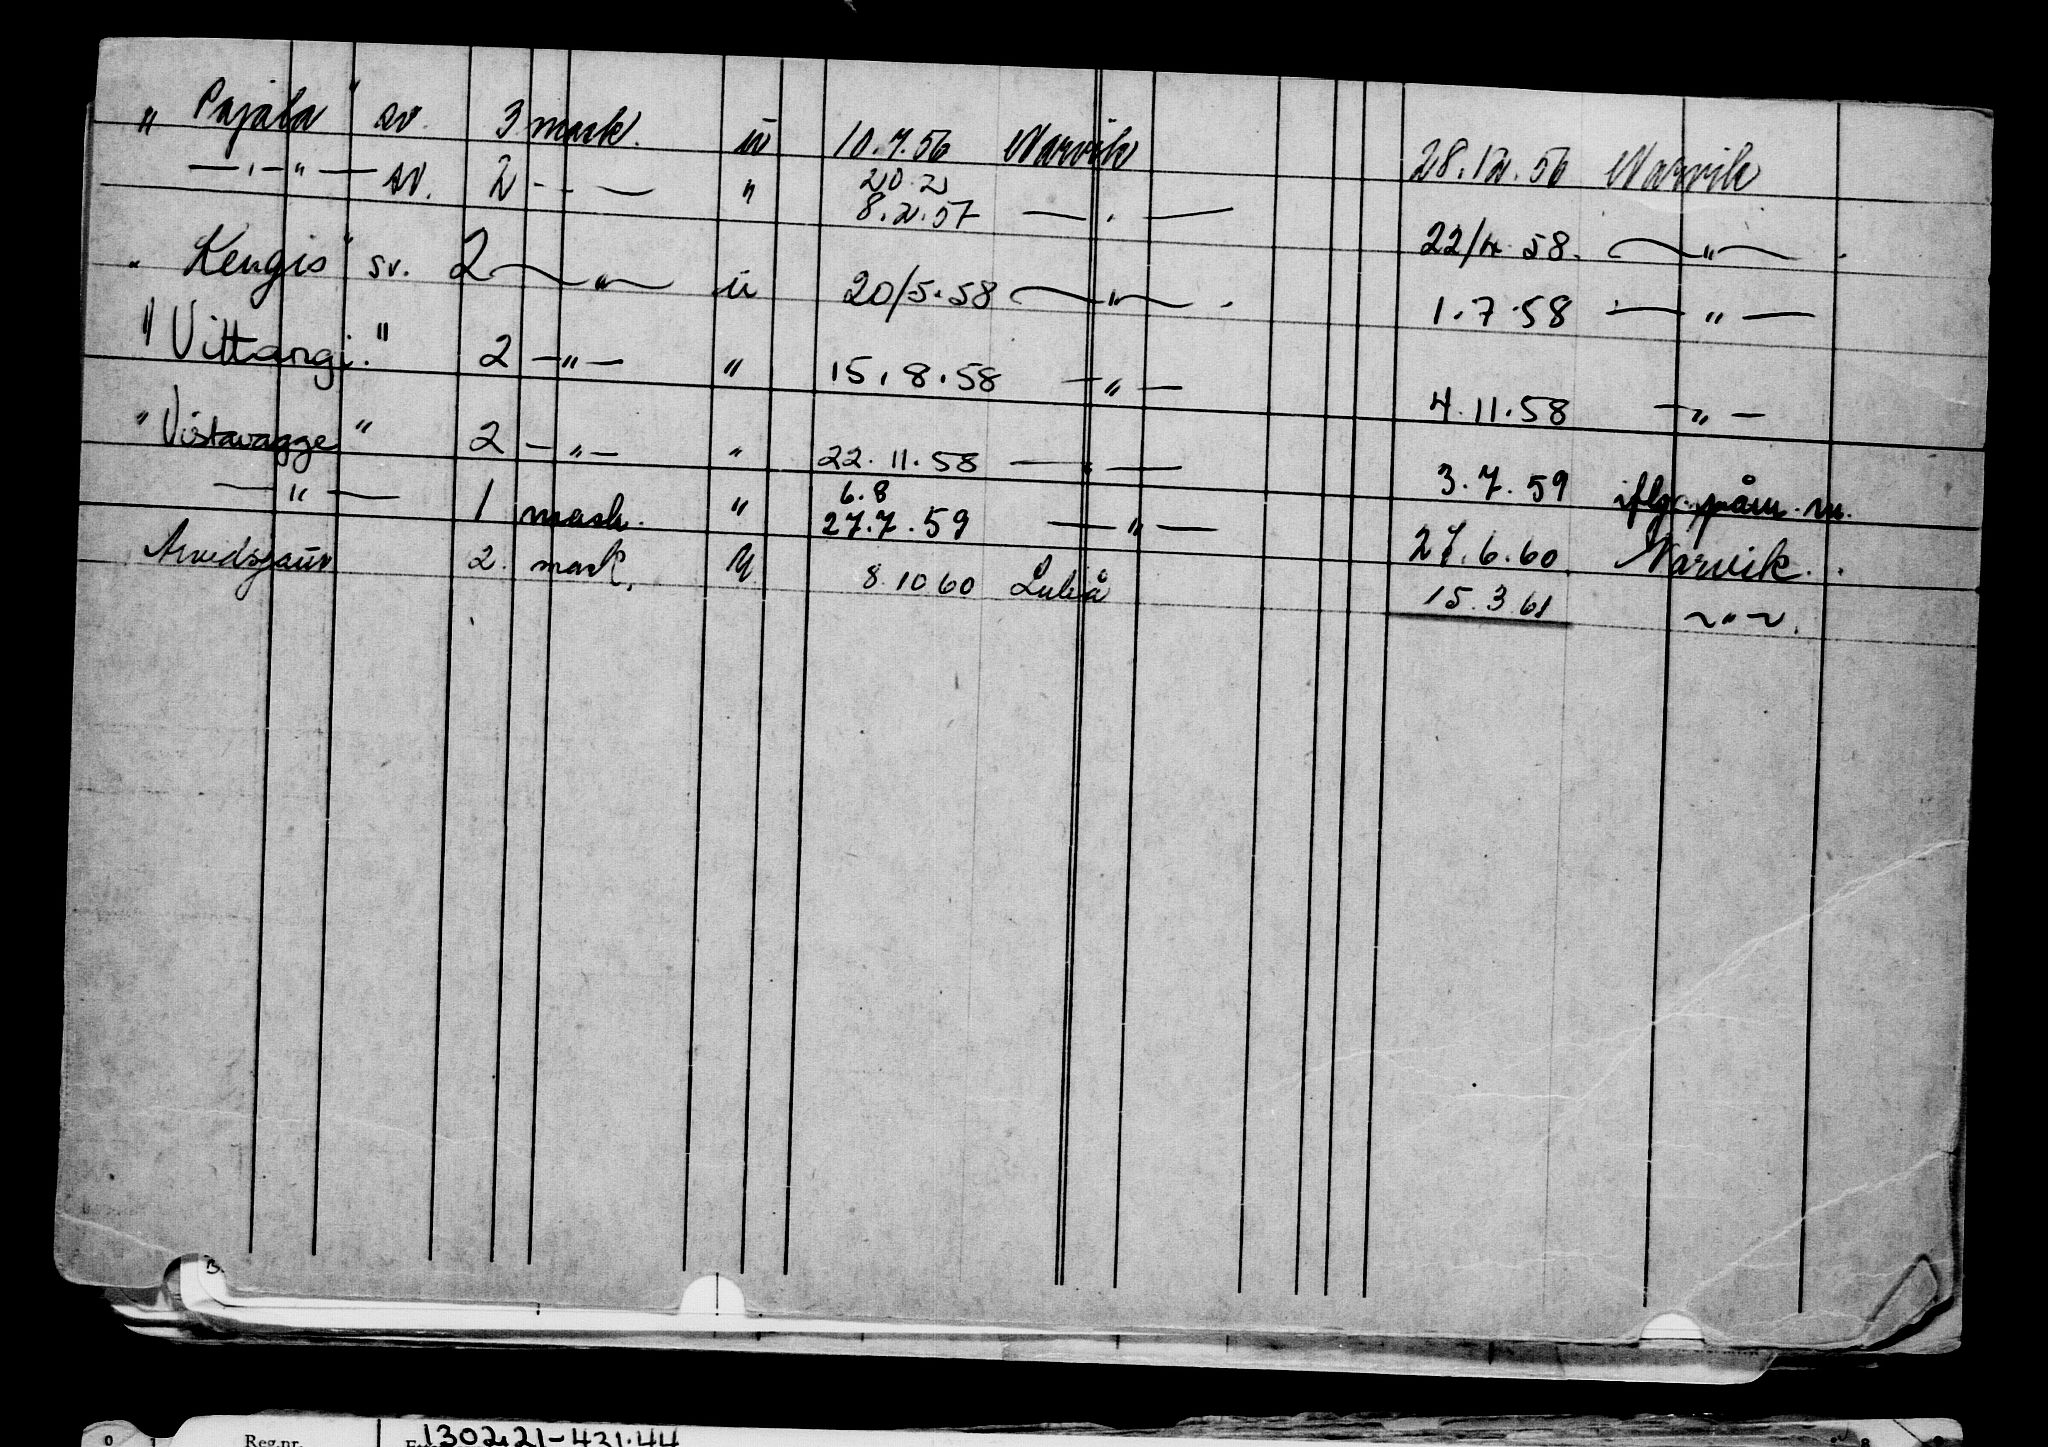 " Pajala " sv. 3 mask. u 10.7.56 Narvik 28.12.56 Narvik
— " — sv. 2 — " — " 20.2 8.2.57 — " — 22/4.58. — " —
" Kengis " sv. 2 — " — u 20/5.58 — " — 1.7.58 — " —
" Vittangi " 2 — " — " 15.8.58 — " — 4.11.58 — " —
" Vistavagge " 2 — " — " 22.11.58 — " — 3.7.59 iflg. påm. nr.
— " — 1 mask. " 6.8 27.7.59 — " — 27.6.60 Narvik.
Arvidsjaur 2. mask. u 8.10.60 Luleå 15.3.61 — " —
B.
0 1 Reg.nr. 130221-431.44 8